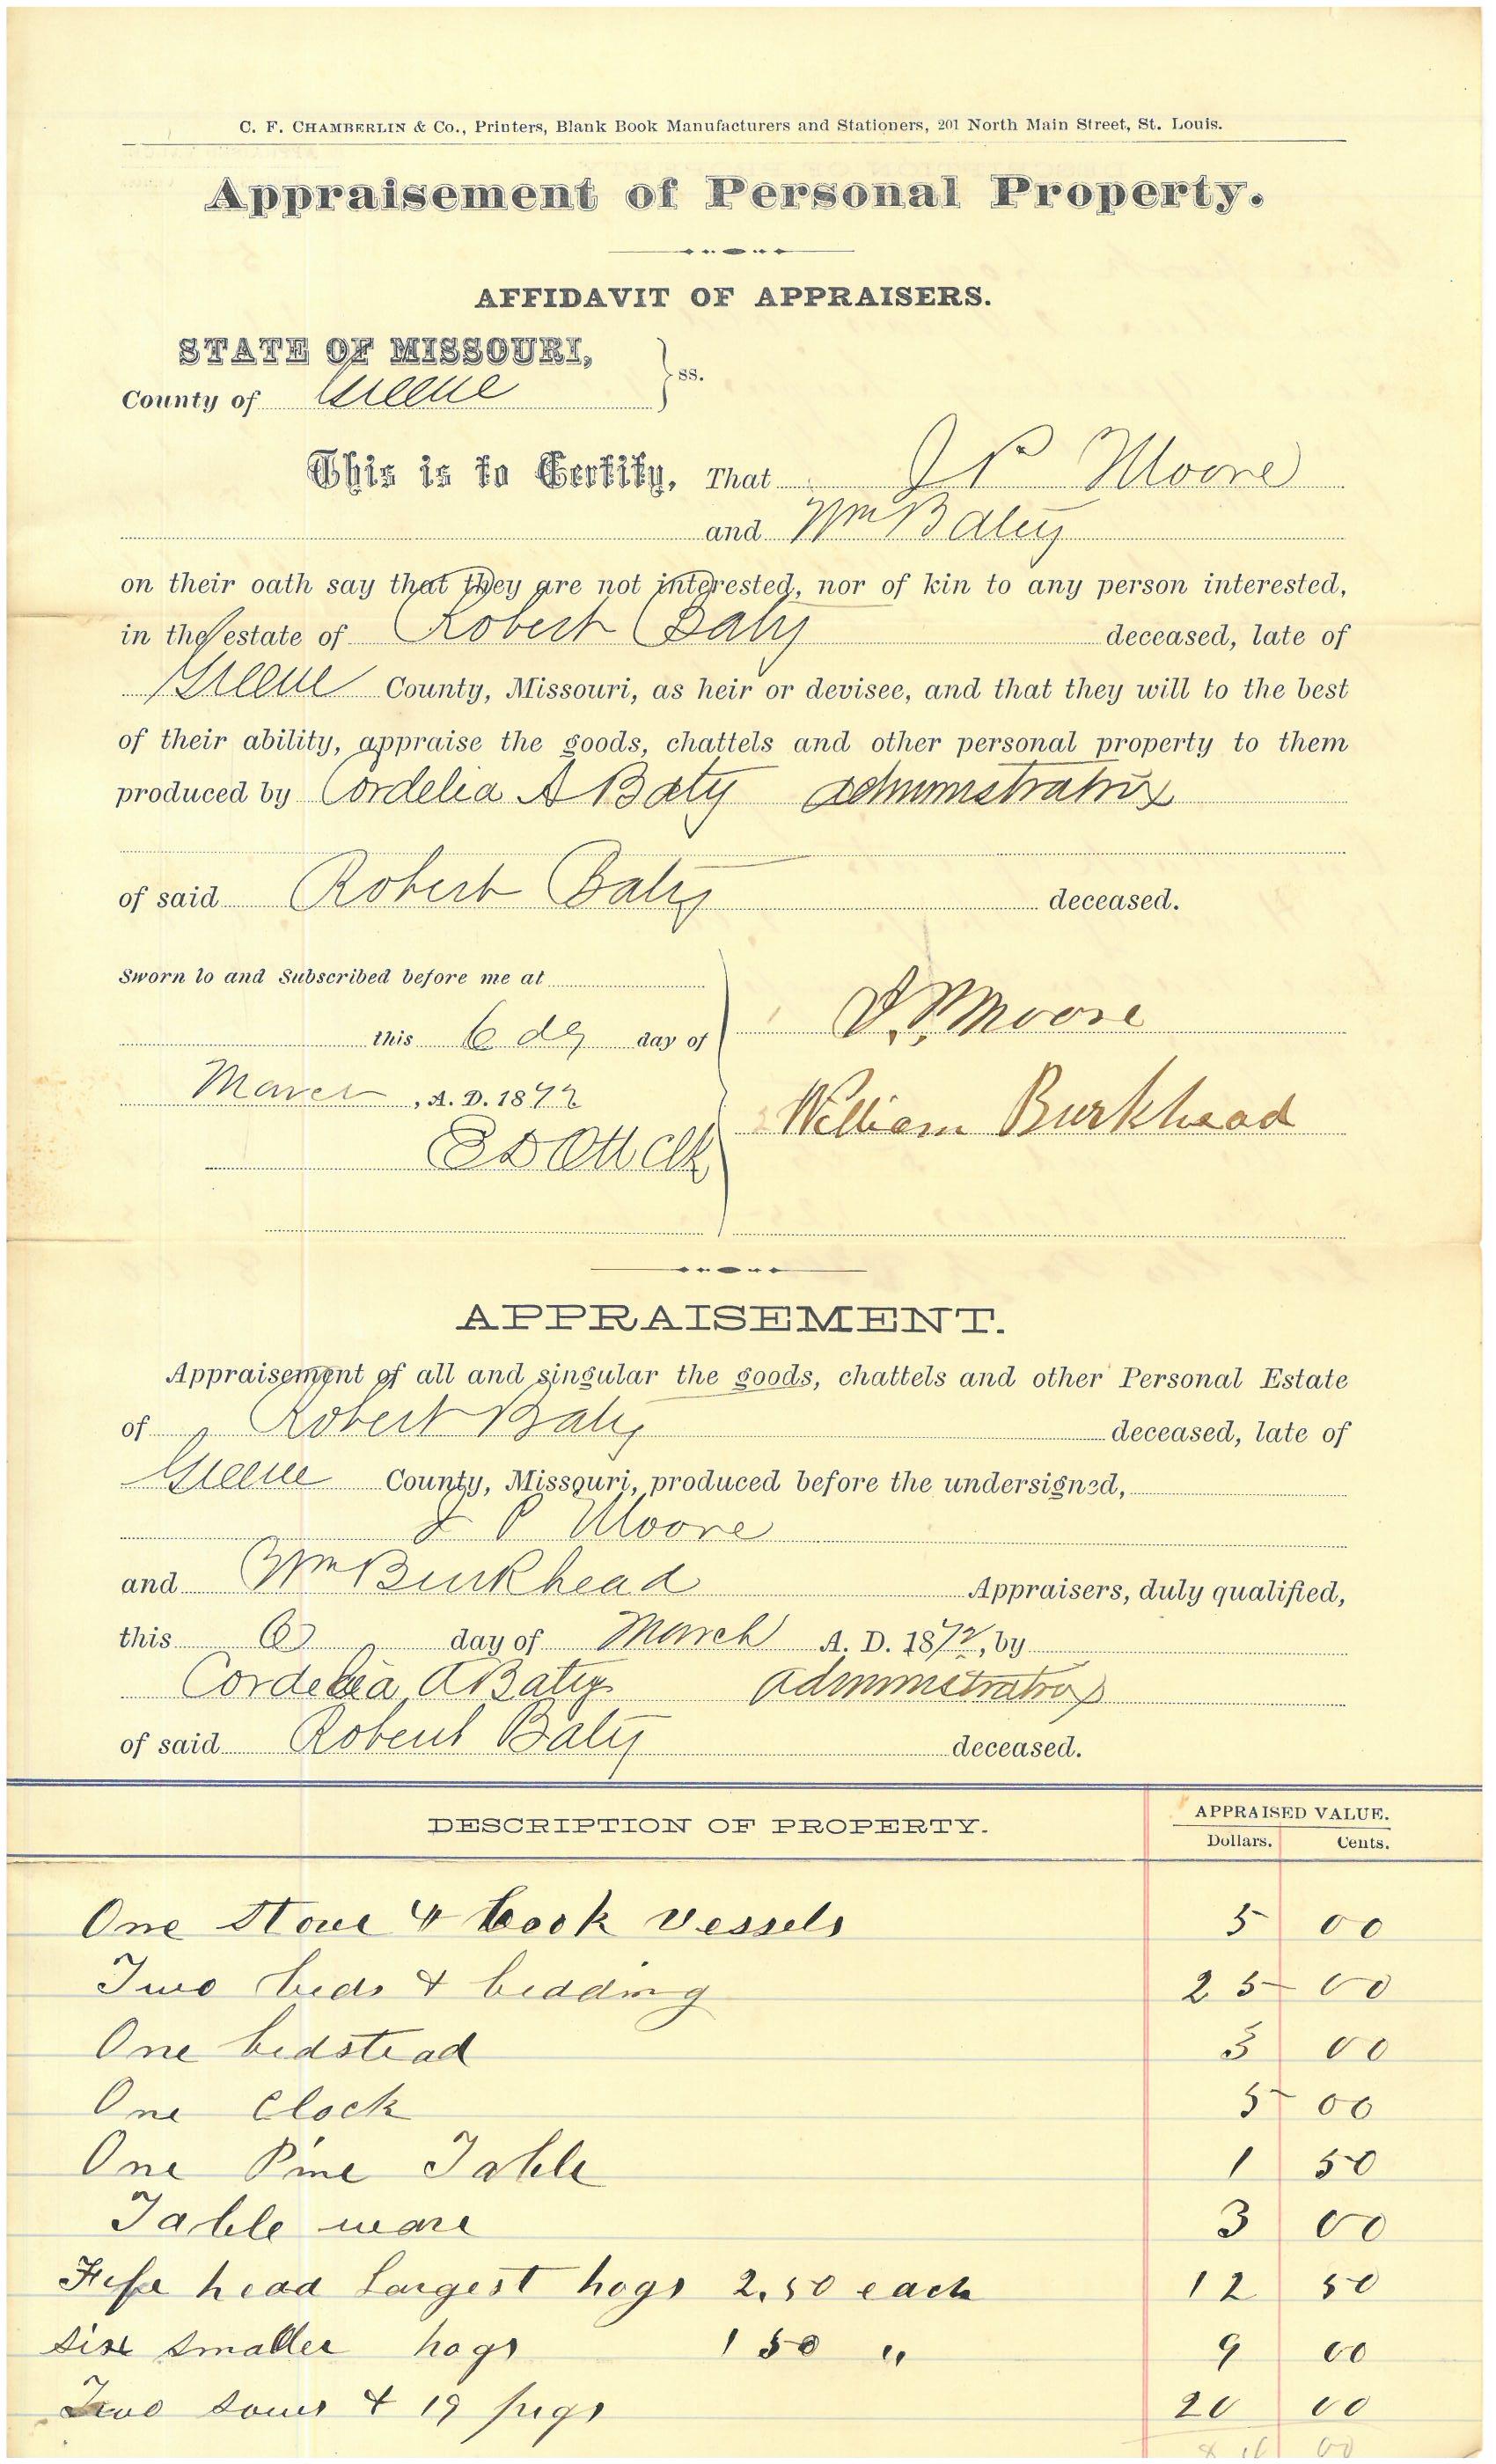 C. F. CHAMBERLIN & Co., Printers, Blank Book Manufacturers and Stationers, 201 North Main Street, St. Louis.
Appraisement of Personal Property.
AFFIDAVIT OF APPRAISERS.
STATE OF MISSOURI,
County of Greene } ss.
This is to Certify, That J P Moore
and Wm Baty
on their oath say that they are not interested, nor of kin to any person interested,
in the estate of Robert Baty deceased, late of
Greene County, Missouri, as heir or devisee, and that they will to the best
of their ability, appraise the goods, chattels and other personal property to them
produced by Cordelia A Baty administratrix
of said Robert Baty deceased.
Sworn to and Subscribed before me at
J. P. Moore
this 6 day day of
March, A. D. 1872
William Burkhead
E D Ott Clk
APPRAISEMENT.
Appraisement of all and singular the goods, chattels and other Personal Estate
of Robert Baty deceased, late of
Greene County, Missouri, produced before the undersigned,
J P Moore
and Wm Burkhead Appraisers, duly qualified,
this 6 day of March A. D. 1872, by
Cordelia A Baty administratrix
of said Robert Baty deceased.
DESCRIPTION OF PROPERTY. APPRAISED VALUE.
Dollars. Cents.
One Stove & Cook vessels 5 00
Two beds & bedding 25 00
One bedstead 3 00
One Clock 5 00
One Pine Table 1 50
Table ware 3 00
Five head Largest hogs 2.50 each 12 50
Six smaller hogs 1 50 " 9 00
Two sows & 19 pigs 20 00